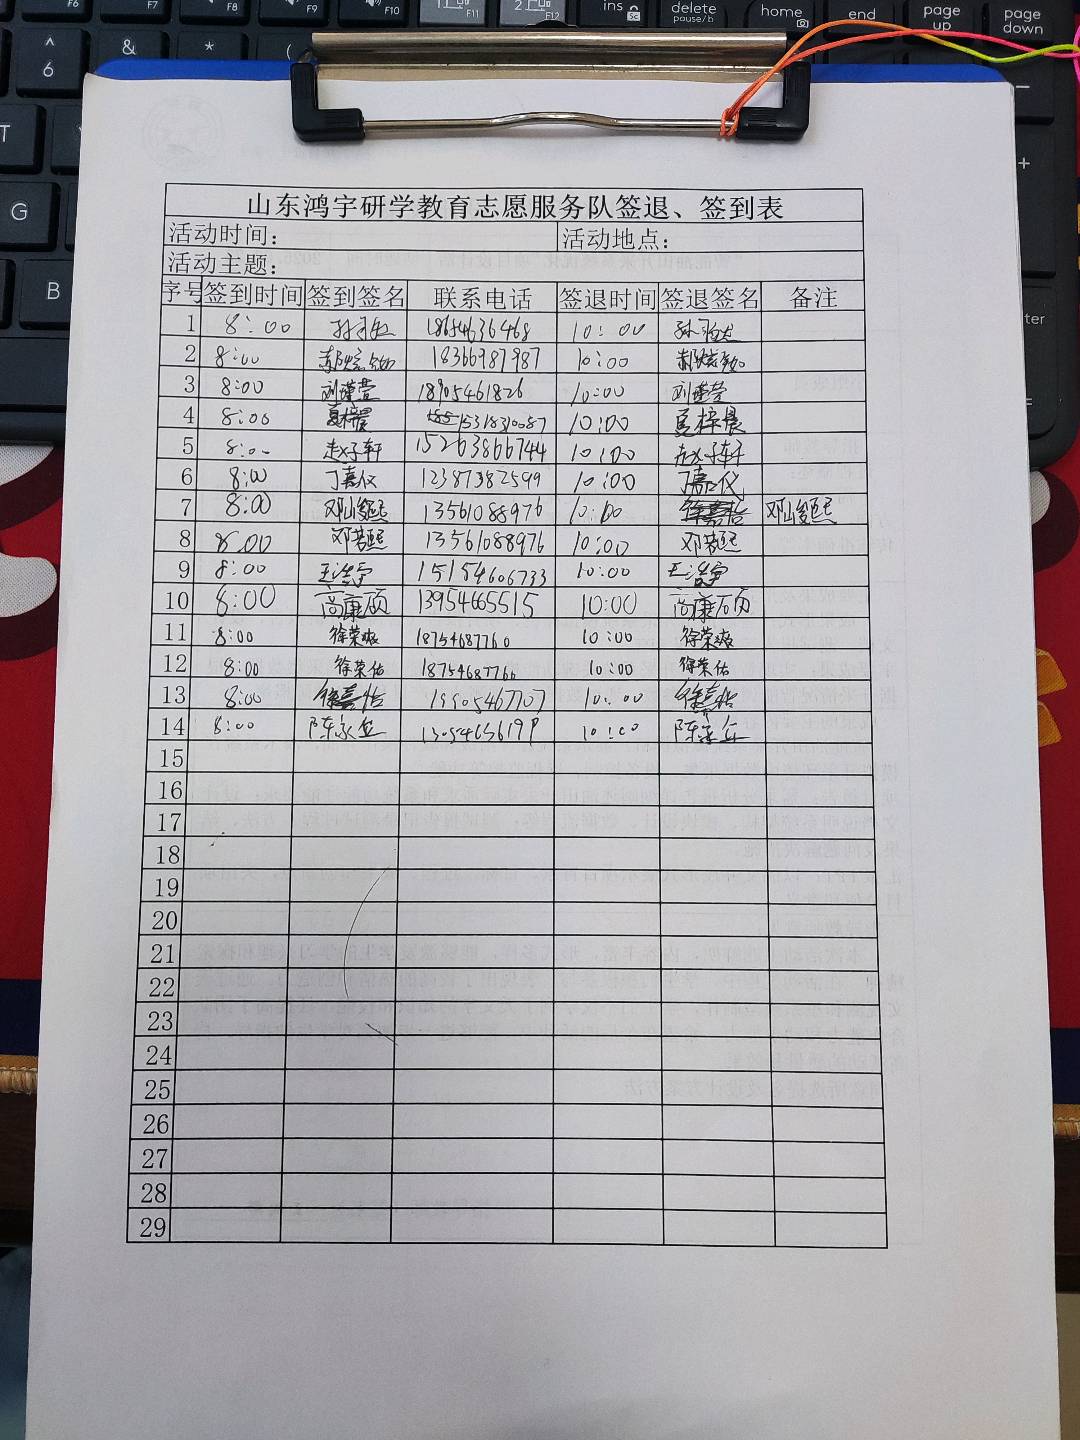 山东鸿宇研学教育志愿服务队签退、签到表
活动时间: 活动地点:
活动主题:
序号 签到时间 签到签名 联系电话 签退时间 签退签名 备注
1 8:00 18654636468 10:00
2 8:00 18366987987 10:00
3 8:00 刘瑾萱 18905461826 10:00 刘瑾萱
4 8:00 夏梓晨 15318310087 10:00 夏梓晨
5 8:00 赵子轩 15263866744 10:00 赵子轩
6 8:00 丁嘉仪 12387382599 10:00 丁嘉仪
7 8:00 邓峻熙 13561088976 10:00 徐嘉怡 邓峻熙
8 8:00 邓若熙 13561088976 10:00 邓若熙
9 8:00 王浩宇 15154606733 10:00 王浩宇
10 8:00 尚康硕 13954665515 10:00 尚康硕
11 8:00 徐荣爽 18754687760 10:00 徐荣爽
12 8:00 徐荣佑 18754687766 10:00 徐荣佑
13 8:00 徐嘉怡 19905467707 10:00 徐嘉怡
14 8:00 10:00
15
16
17
18
19
20
21
22
23
24
25
26
27
28
29
6
T
G
B
&
*
(
F6
F7
F8
F9
F10
F11
F12
ins
delete
pause/b
home
end
page
up
page
down
ter